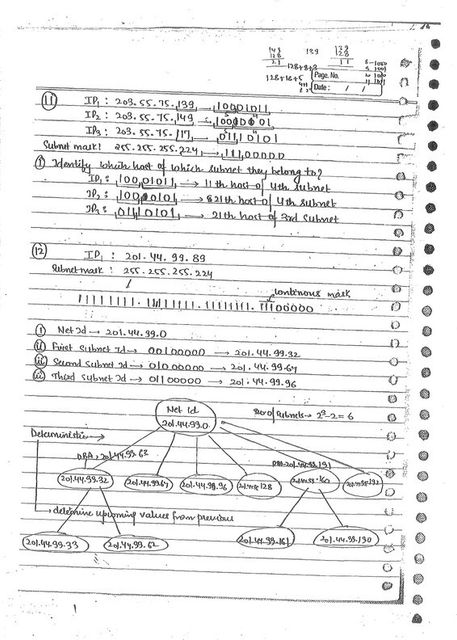 Page No.
Date : / /
11 IP1 : 203.55.75.139 → 10001011
IP2 : 203.55.75.149 →
IP3 : 203.55.75.117 → 01110101
Subnet mask! 255.255.255.224 → 11100000
i Identify which host of which subnet they belong to?
IP1 : 10001011 → 11th host of 4th subnet
→ 21th host of 4th subnet
01110101 → 21th host of 3rd subnet
12 IP1 : 201.44.99.89
Subnet mask : 255.255.255.224
continous mask
11111111.11111111.11111111.11100000
i Net Id → 201.44.99.0
ii First Subnet Id → 00100000 → 201.44.99.32
iii Second Subnet Id → 01000000 → 201.44.99.64
iii Third Subnet Id → 01100000 → 201.44.99.96
Net Id
201.44.99.0
No of subnets → 2³-2=6
Deterministic →
DBA → 201.44.99.63
201.44.99.32
201.44.99.64
201.44.99.96
→ determine upcoming values from previous
201.44.99.33
201.44.99.62
201.44.99.161
201.44.99.190